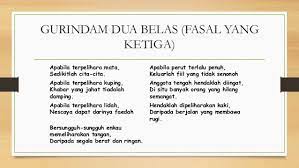 GURINDAM DUA BELAS (FASAL YANG
KETIGA)
Apabila terpelihara mata,
Sedikitlah cita-cita.
Apabila terpelihara kuping,
Khabar yang jahat tiadalah
damping.
Apabila terpelihara lidah,
Nescaya dapat darinya faedah
Bersungguh-sungguh enkau
memeliharakan tangan,
Daripada segala berat dan ringan.
Apabila perut terlalu penuh,
Keluarlah fiil yang tidak senonoh
Anggota tengah hendaklah diingat,
Di situ banyak orang yang hilang
semangat.
Hendaklah dipeliharakan kaki,
Daripada berjalan yang membawa
rugi.